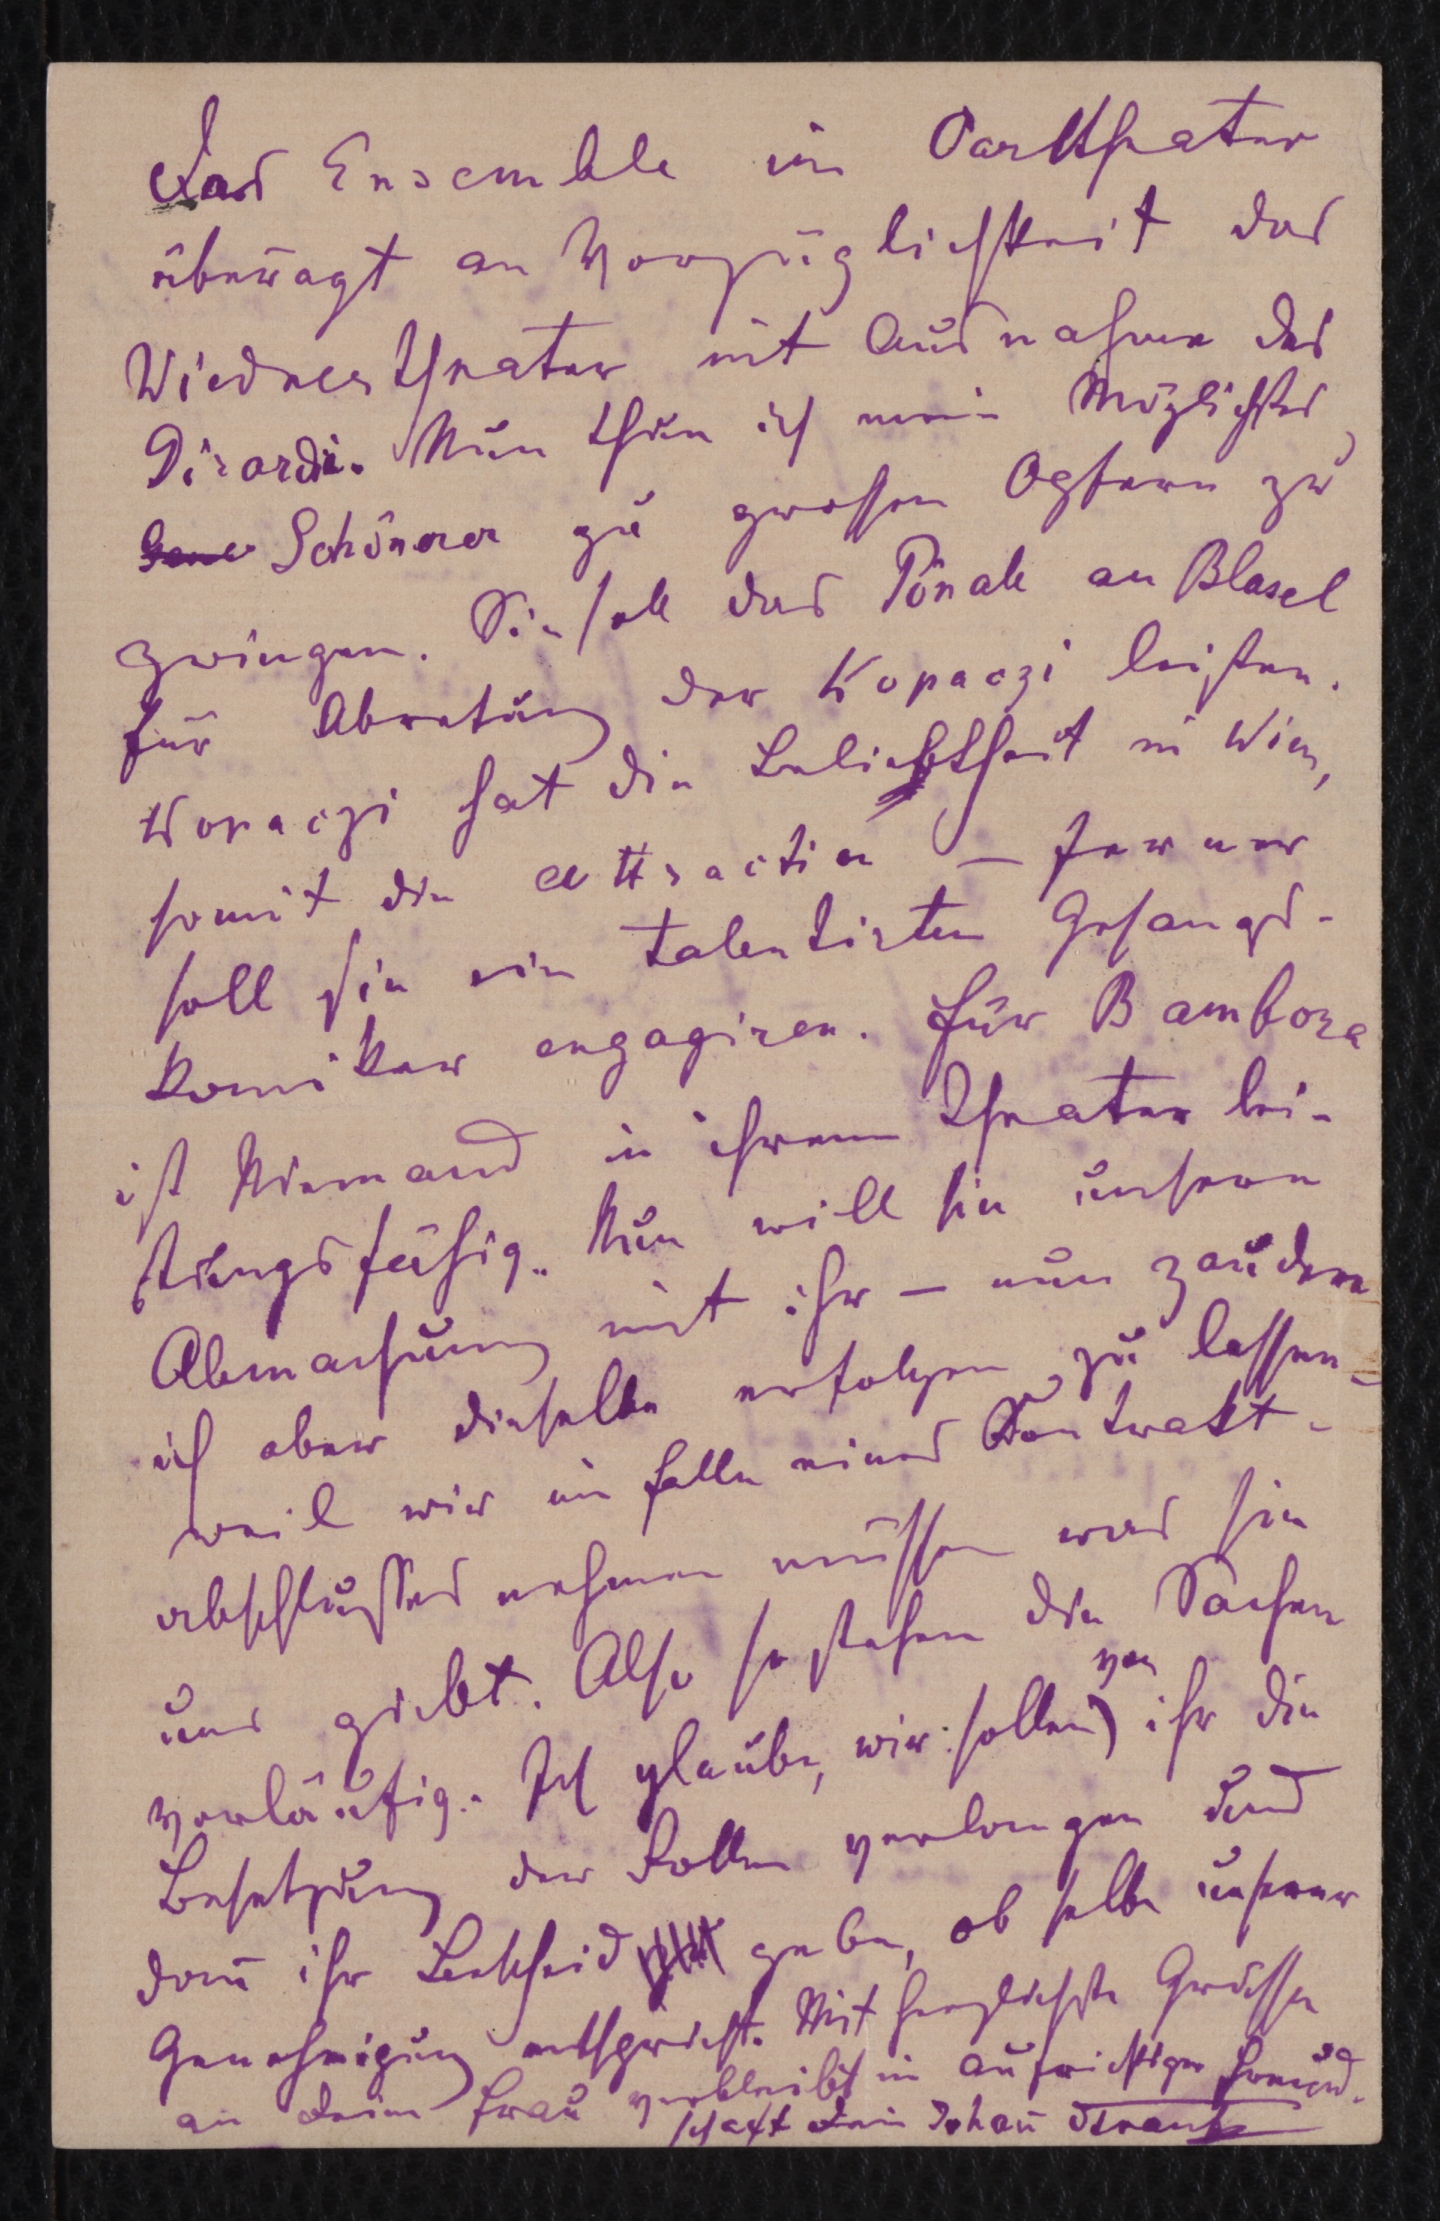 Das Ensemble im Carltheater
überragt an Vorzüglichkeit das
Wiednertheater mit Ausnahme des
Girardi. Nun thue ich mein Möglichstes,
Schönerer zu grossen Opfern zu
zwingen. Sie soll das Pönale an Blasel
für Abtretung der Kopaczi leisten.
Kopaczi hat die Beliebtheit in Wien,
somit die attraction – ferner
soll sie ein talentirten Gesangs-
komiker engagiren. Für Bambora
ist Niemand in ihrem Theater lei-
stungsfähig. Nun will sie unsere
Abmachung mit ihr – nun zaudere
ich aber dieselbe erfolgen zu lassen –
weil wir im Falle eines Kontrakt-
abschlusses nehmen müssen was sie
uns giebt. Also so stehen die Sachen
vorläufig. Ich glaube, wir sollen von ihr die
Besetzung der Rollen verlangen und
dann ihr Bescheid geben, ob selbe unserer
Genehmigung entspricht. Mit herzlichste Grüsse
an Deine Frau verbleibt in aufrichtiger Freund-
schaft Dein Johann Strauss